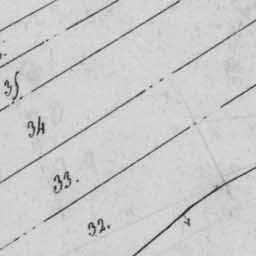 35
34
33.
32.